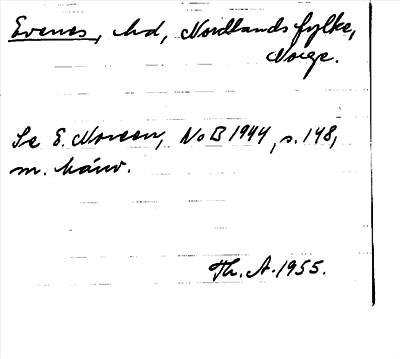 Evenes, hd, Nordlands fylke,
Norge.
Se E. Noreen, NoB 1944, s. 148,
m. hänv.
Th. A. 1955.